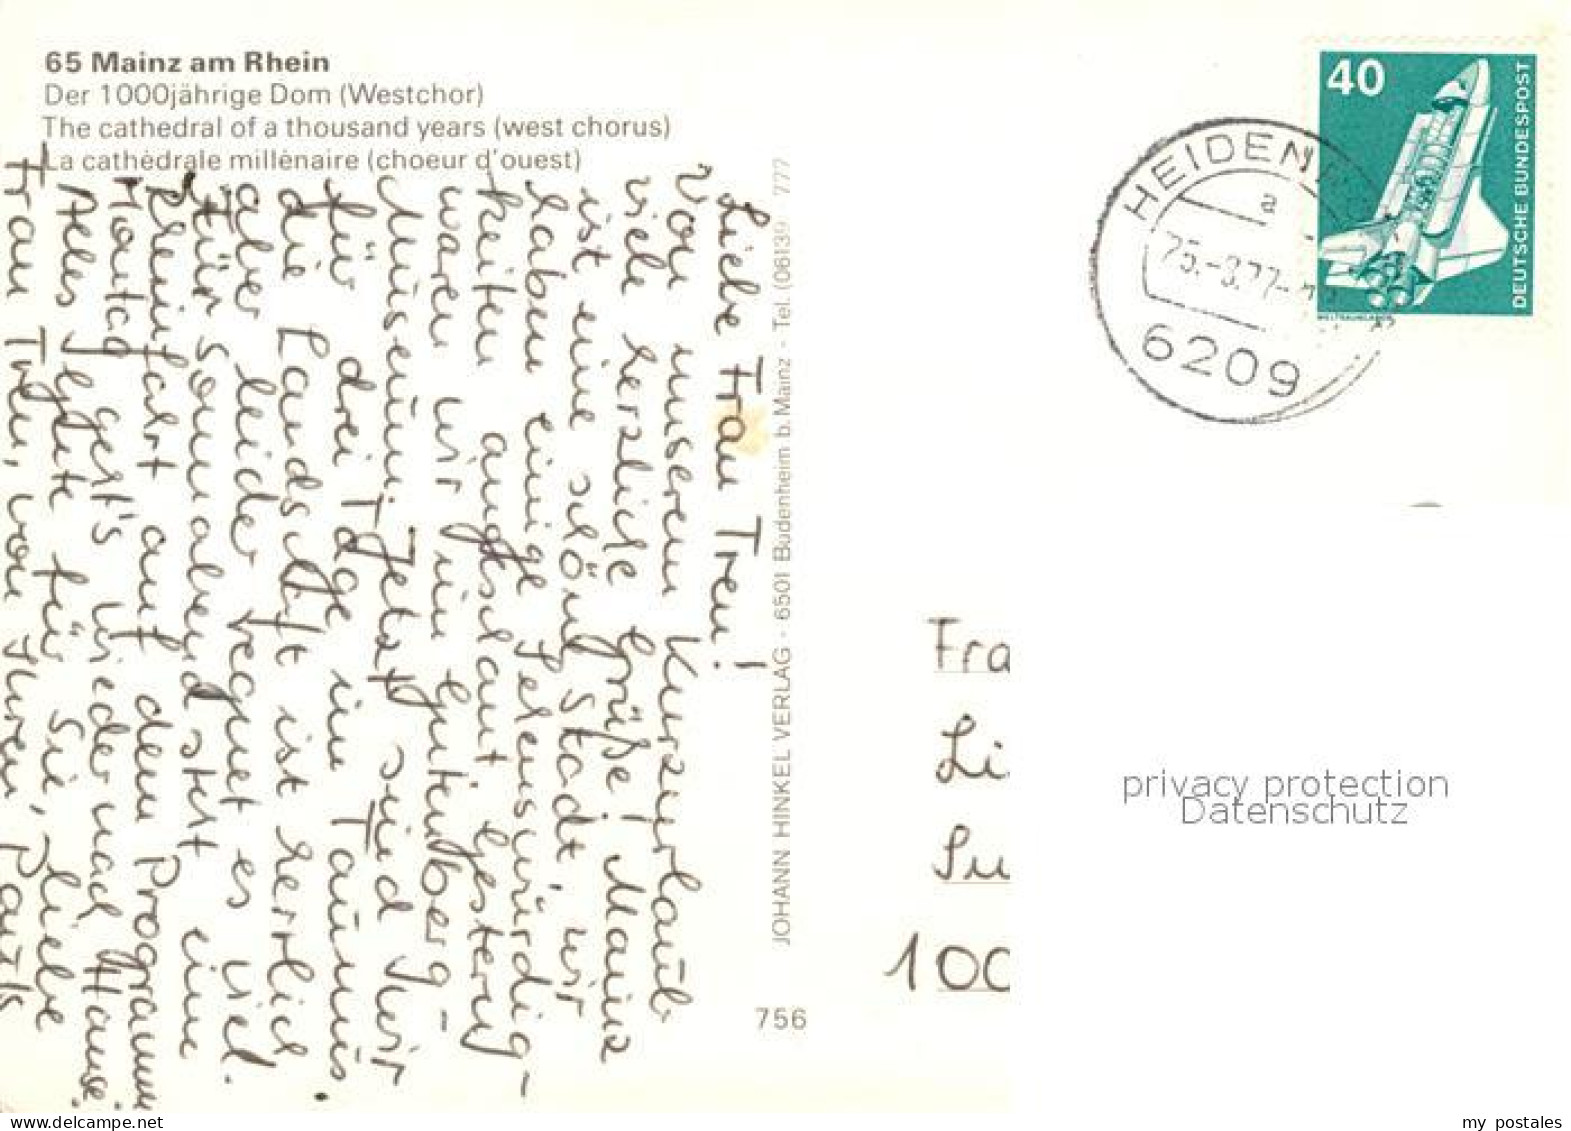 65 Mainz am Rhein
Der 1000jährige Dom (Westchor)
The cathedral of a thousand years (west chorus)
La cathédrale millénaire (choeur d'ouest)
Liebe Frau Treu!
Von unserem Kurzurlaub
viele herzliche Grüße! Mainz
ist eine schöne Stadt, wir
haben einige Sehenswürdig-
keiten angeschaut. Gestern
waren wir im Gutenberg-
Museum. Jetzt sind wir
für drei Tage im Taunus.
die Landschaft ist herrlich
aber leider regnet es viel.
Für Sonnabend steht eine
Rheinfahrt auf dem Programm
Montag geht's wieder nach Hause.
Alles Gute für Sie, liebe
Frau Treu, von Ihren
JOHANN HINKEL VERLAG · 6501 Budenheim b. Mainz - Tel. (06139) 777
756
40
DEUTSCHE BUNDESPOST
WELTRAUMLABOR
HEIDEN
a
25.-8.77
6209
Fra
Li
Su
100
privacy protection
Datenschutz
www.delcampe.net
my_postales